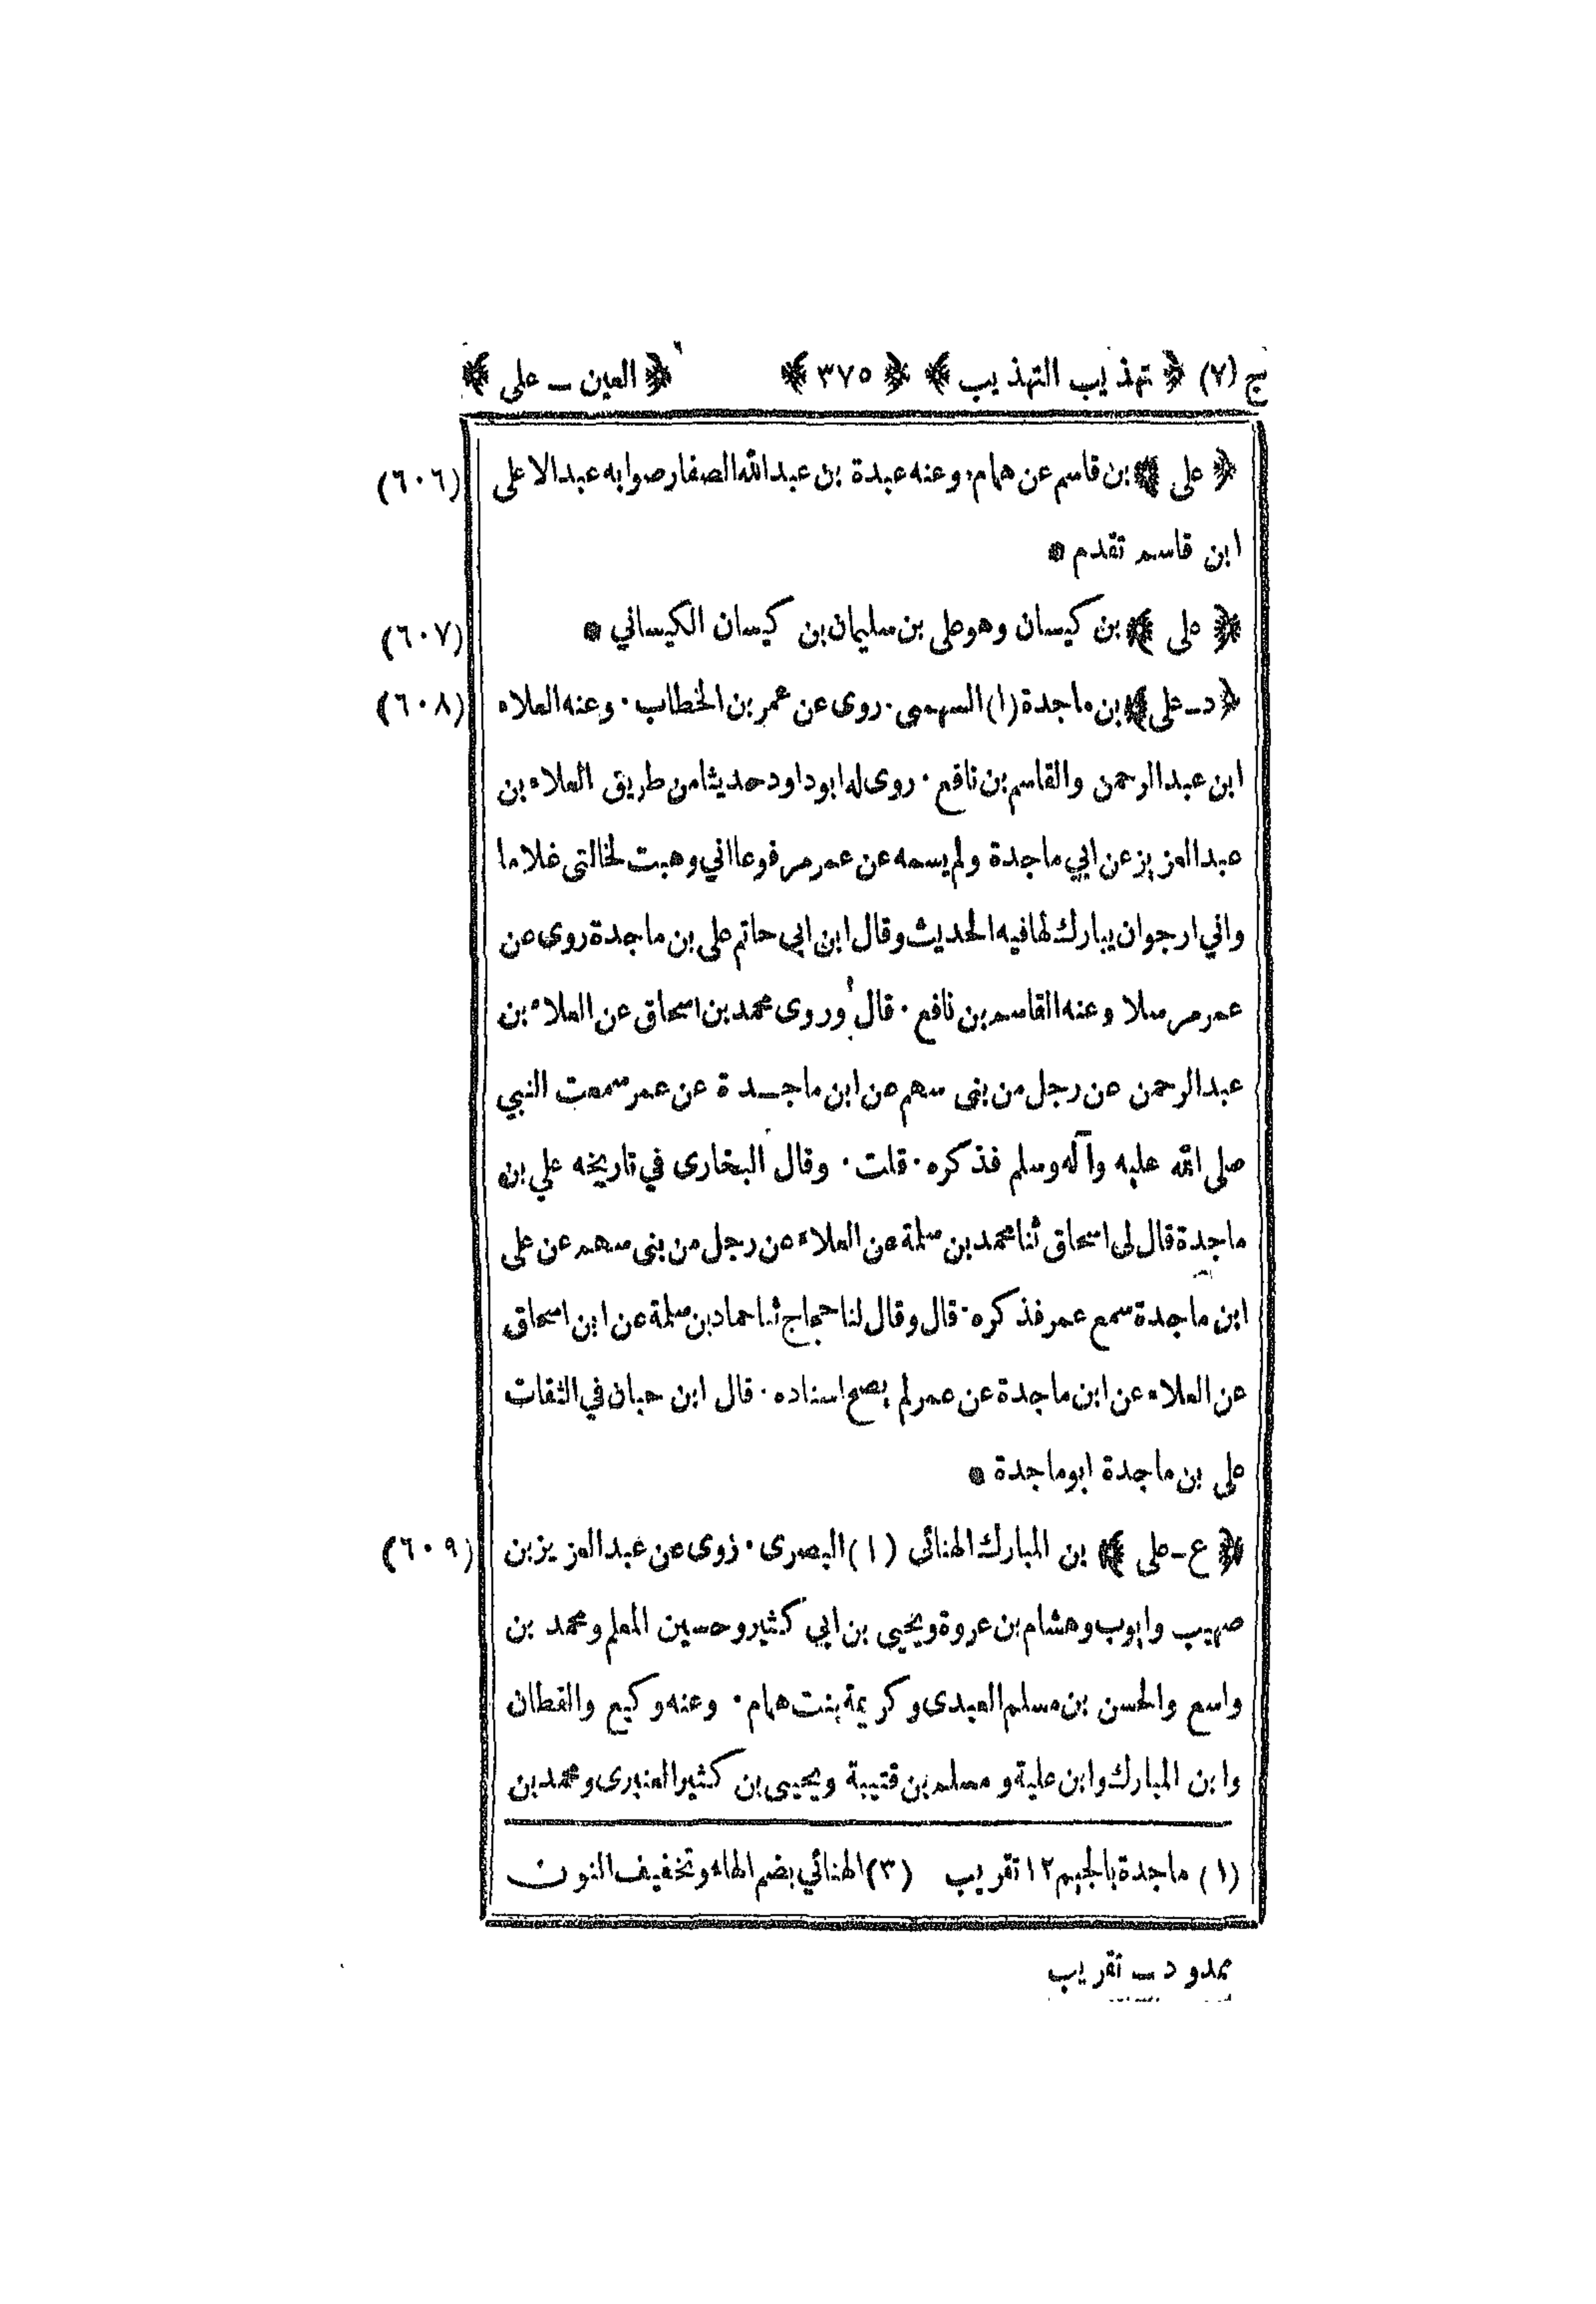 ج (٧) ﴿ تهذيب التهذيب ﴾ ﴿ ٣٧٥ ﴾ ﴿ العين ــ على ﴾
﴿ على ﴾ بن قاسم عن همام، وعنه عبدة بن عبدالله الصفار صوابه عبدالاعلى (٦٠٦)
ابن قاسم تقدم *
﴿ على ﴾ بن كيسان وهو على بن سليمان بن كيسان الكيساني * (٦٠٧)
﴿ د ـ على ﴾ بن ماجدة (١) السهمى ٠ روى عن عمر بن الخطاب ٠ وعنه العلاء (٦٠٨)
ابن عبدالرحمن والقاسم بن نافع ٠ روى له ابو داود حديثا من طريق العلاء بن
عبدالعزيز عن ابي ماجدة ولم يسمه عن عمر مرفوعا اني وهبت لخالتى غلاما
واني ارجو ان يبارك لها فيه الحديث وقال ابن ابى حاتم على بن ماجدة روى عن
عمر مرسلا وعنه القاسم بن نافع ٠ قال وروى محمد بن اسحاق عن العلاء بن
عبدالرحمن عن رجل من بنى سهم عن ابن ماجـــدة عن عمر سمعت النبي
صلى الله عليه وآله وسلم فذكره ٠ قلت ٠ وقال البخارى في تاريخه علي بن
ماجدة قال لى اسحاق ثنا محمد بن سلمة عن العلاء عن رجل من بنى سهم عن على
ابن ماجدة سمع عمر فذكره ٠ قال وقال لنا حجاج ثنا حماد بن سلمة عن ابن اسحاق
عن العلاء عن ابن ماجدة عن عمر لم يصح اسناده ٠ قال ابن حبان في الثقات
على بن ماجدة ابو ماجدة *
﴿ ع ـ على ﴾ بن المبارك الهنائى (١) البصرى ٠ روى عن عبدالعزيز بن (٦٠٩)
صهيب وايوب وهشام بن عروة ويحيى بن ابي كثير وحسين المعلم ومحمد بن
واسع والحسن بن مسلم العبدى وكريمة بنت همام ٠ وعنه وكيع والقطان
وابن المبارك وابن علية ومسلم بن قتيبة ويحيى بن كثير العنبرى ومحمد بن
(١) ماجدة بالجيم ١٢ تقريب (٣) الهنائي بضم الهاء وتخفيف النون
ممدود ــ تقريب